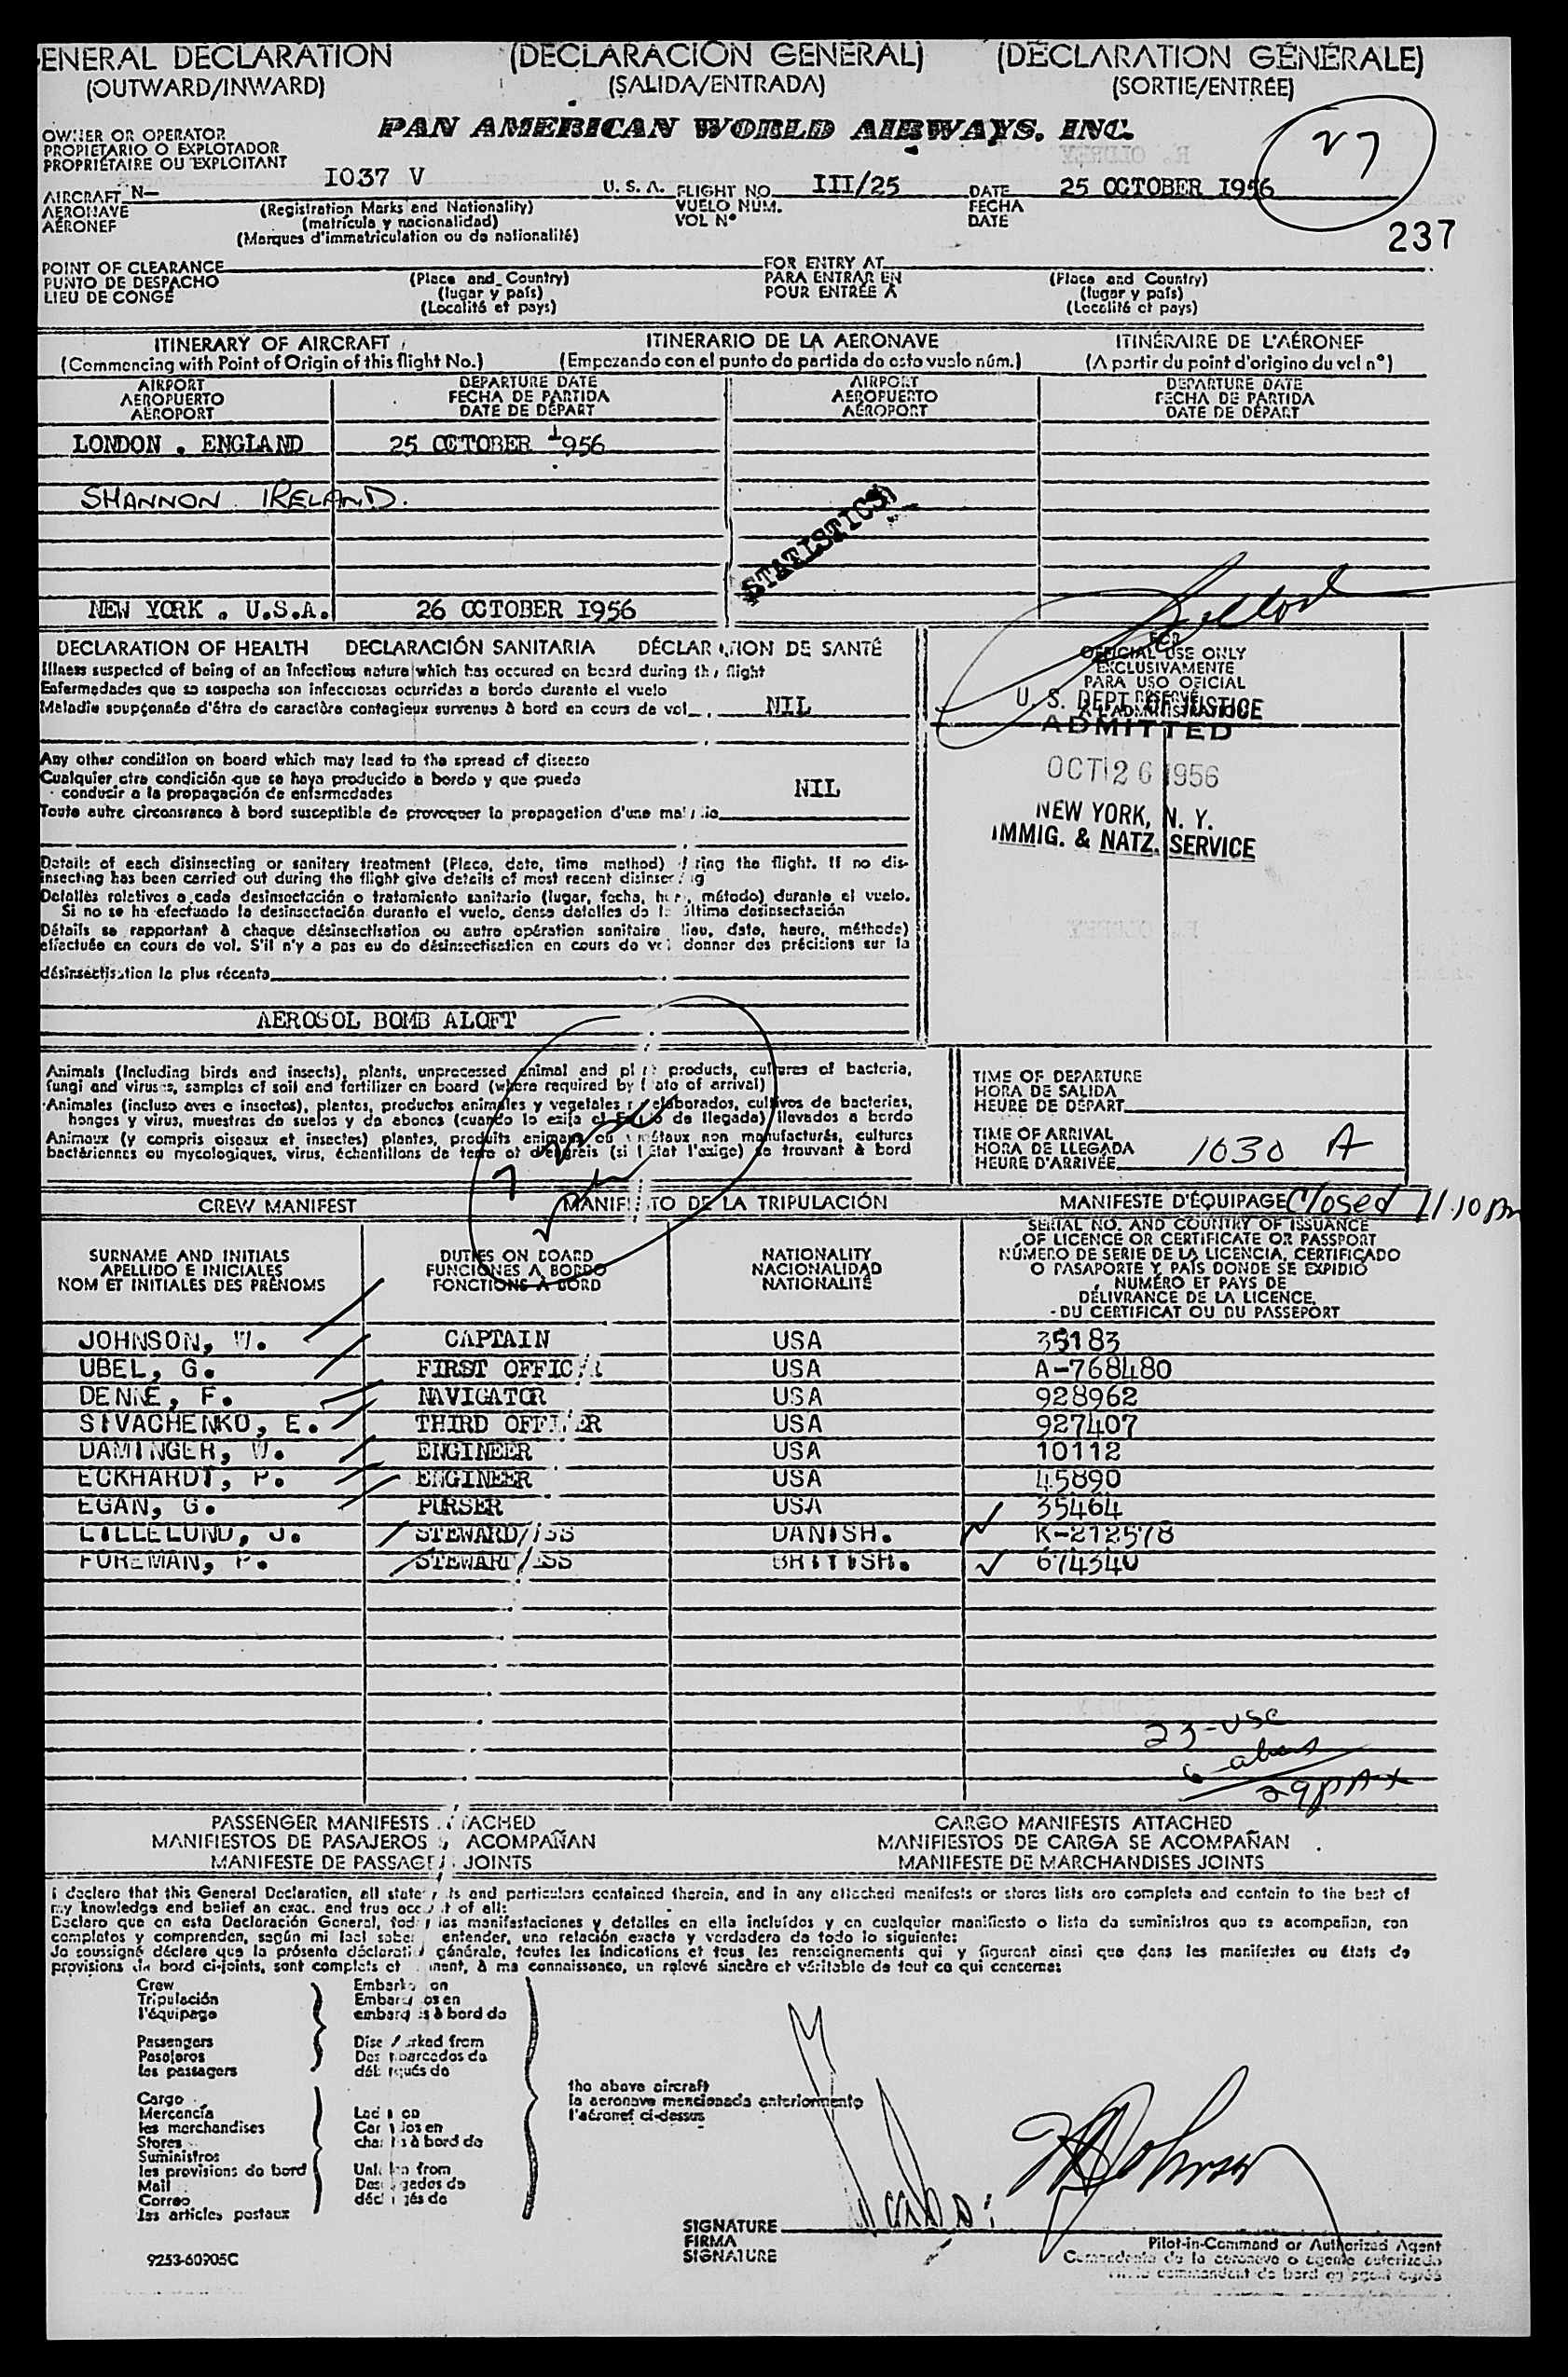 ENERAL DECLARATION (DECLARACIÓN GENERAL) (DÉCLARATION GÉNÉRALE)
(OUTWARD/INWARD) (SALIDA/ENTRADA) (SORTIE/ENTRÉE)
OWNER OR OPERATOR PAN AMERICAN WORLD AIRWAYS, INC.
PROPIETARIO O EXPLOTADOR
PROPRIÉTAIRE OU EXPLOITANT
27
AIRCRAFT N— I037 V U. S. A. FLIGHT NO. III/25 DATE 25 OCTOBER I956
AERONAVE (Registration Marks and Nationality) VUELO NUM. FECHA
AÉRONEF (matrícula y nacionalidad) VOL Nº DATE
(Marques d'immatriculation ou de nationalité)
237
POINT OF CLEARANCE FOR ENTRY AT
PUNTO DE DESPACHO (Place and Country) PARA ENTRAR EN (Place and Country)
LIEU DE CONGÉ (lugar y país) POUR ENTRÉE À (lugar y país)
(Localité et pays) (Localité et pays)
ITINERARY OF AIRCRAFT ITINERARIO DE LA AERONAVE ITINÉRAIRE DE L'AÉRONEF
(Commencing with Point of Origin of this flight No.) (Empezando con el punto de partida de esto vuelo núm.) (A partir du point d'origine du vol nº)
AIRPORT DEPARTURE DATE AIRPORT DEPARTURE DATE
AEROPUERTO FECHA DE PARTIDA AEROPUERTO FECHA DE PARTIDA
AÉROPORT DATE DE DÉPART AÉROPORT DATE DE DÉPART
LONDON . ENGLAND 25 OCTOBER 1956
SHANNON IRELAND.
STATISTICS
NEW YORK . U.S.A. 26 OCTOBER I956
DECLARATION OF HEALTH DECLARACIÓN SANITARIA DÉCLARATION DE SANTÉ
Illness suspected of being of an infectious nature which has occured on board during the flight
Enfermedades que se sospecha son infecciosas ocurridas a bordo durante el vuelo
Maladie soupçonnée d'être de caractère contagieux survenue à bord en cours de vol NIL
FOR
OFFICIAL USE ONLY
EXCLUSIVAMENTE
PARA USO OFICIAL
RÉSERVÉ
À L'ADMINISTRATION
U. S. DEPT. OF JUSTICE
ADMITTED
OCT 26 1956
NEW YORK, N. Y.
IMMIG. & NATZ. SERVICE
Any other condition on board which may lead to the spread of disease
Cualquier otra condición que se haya producido a bordo y que pueda
conducir a la propagación de enfermedades NIL
Toute autre circonstance à bord susceptible de provoquer la propagation d'une maladie
Details of each disinsecting or sanitary treatment (Place, date, time method) during the flight. If no dis-
insecting has been carried out during the flight give details of most recent disinsecting
Detalles relativos a cada desinsectación o tratamiento sanitario (lugar, fecha, hora, método) durante el vuelo.
Si no se ha efectuado la desinsectación durante el vuelo, dense detalles de la última desinsectación
Détails se rapportant à chaque désinsectisation ou autre opération sanitaire lieu, date, heure, méthode)
effectuée en cours de vol. S'il n'y a pas eu de désinsectisation en cours de vol donner des précisions sur la
désinsectisation la plus récente
AEROSOL BOMB ALOFT
Animals (Including birds and insects), plants, unprocessed animal and plant products, cultures of bacteria,
fungi and viruses, samples of soil and fertilizer on board (where required by State of arrival)
Animales (incluso aves e insectos), plantas, productos animales y vegetales no elaborados, cultivos de bacterias,
hongos y virus, muestras de suelos y de abonos (cuando lo exija el Estado de llegada) llevados a bordo
Animaux (y compris oiseaux et insectes) plantes, produits animaux ou végétaux non manufacturés, cultures
bactériennes ou mycologiques, virus, échantillons de terre et d'engrais (si l'État l'exige) se trouvant à bord
TIME OF DEPARTURE
HORA DE SALIDA
HEURE DE DÉPART
TIME OF ARRIVAL
HORA DE LLEGADA 1030 A
HEURE D'ARRIVÉE
CREW MANIFEST MANIFIESTO DE LA TRIPULACIÓN MANIFESTE D'ÉQUIPAGE Closed 11.10 Am
SURNAME AND INITIALS DUTIES ON BOARD NATIONALITY SERIAL NO. AND COUNTRY OF ISSUANCE
APELLIDO E INICIALES FUNCIONES A BORDO NACIONALIDAD OF LICENCE OR CERTIFICATE OR PASSPORT
NOM ET INITIALES DES PRÉNOMS FONCTIONS A BORD NATIONALITÉ NÚMERO DE SERIE DE LA LICENCIA, CERTIFICADO
O PASAPORTE Y PAÍS DONDE SE EXPIDIÓ
NUMÉRO ET PAYS DE
DÉLIVRANCE DE LA LICENCE,
DU CERTIFICAT OU DU PASSEPORT
JOHNSON, W. CAPTAIN USA 35183
UBEL, G. FIRST OFFICER USA A-768480
DENNE, F. NAVIGATOR USA 928962
SIVACHENKO, E. THIRD OFFICER USA 927407
DAMINGER, W. ENGINEER USA 10112
ECKHARDT, P. ENGINEER USA 45890
EGAN, G. PURSER USA 35464
LILLELUND, J. STEWARD/ESS DANISH. K-212578
FOREMAN, P. STEWARD/ESS BRITISH. 674340
23-USC
6 aliens
29 PAX
PASSENGER MANIFESTS ATTACHED CARGO MANIFESTS ATTACHED
MANIFIESTOS DE PASAJEROS SE ACOMPAÑAN MANIFIESTOS DE CARGA SE ACOMPAÑAN
MANIFESTE DE PASSAGERS JOINTS MANIFESTE DE MARCHANDISES JOINTS
I declare that this General Declaration, all statements and particulars contained therein, and in any attached manifests or stores lists are complete and contain to the best of
my knowledge and belief an exact and true account of all:
Declaro que en esta Declaración General, todas las manifestaciones y detalles en ella incluídos y en cualquier manifiesto o lista de suministros que se acompañan, son
completos y comprenden, según mi leal saber y entender, una relación exacta y verdadera de todo lo siguiente:
Je soussigné déclare que la présente déclaration générale, toutes les indications et tous les renseignements qui y figurent ainsi que dans les manifestes ou états de
provisions de bord ci-joints, sont complets et donnent, à ma connaissance, un relevé sincère et véritable de tout ce qui concerne:
Crew Embarked on
Tripulación Embarcados en
l'équipage embarqués à bord de
Passengers Disembarked from
Pasajeros Desembarcados de
les passagers débarqués de
Cargo
Mercancía Laden on
les marchandises Cargados en
Stores chargés à bord de
Suministros
les provisions de bord Unladen from
Mail Descargados de
Correo déchargés de
les articles postaux
the above aircraft
la aeronave mencionada anteriormente
l'aéronef ci-dessus
W Johnson
SIGNATURE
FIRMA
SIGNATURE
Pilot-in-Command or Authorized Agent
Comandante de la aeronave o agente autorizado
commandant de bord ou agent agréé
9253-60905C